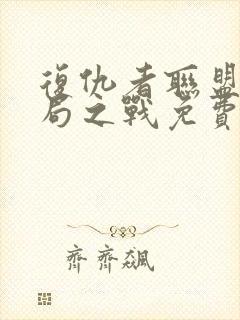 復仇者聯盟
局之戰免費
齊齊飆